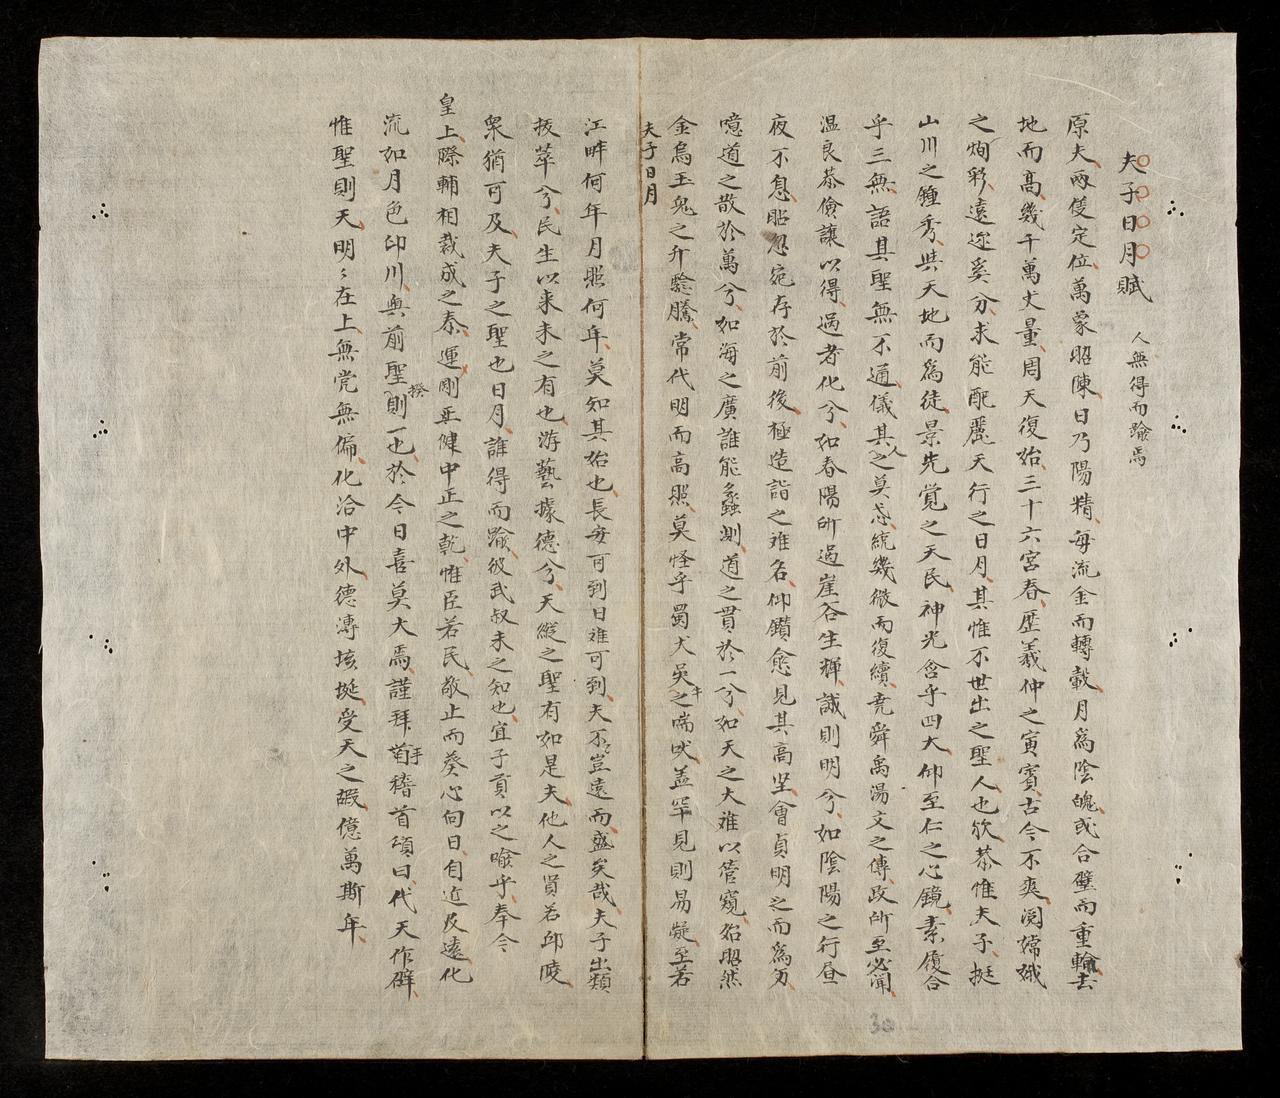 夫子日月賦 人無得而踰焉
原夫兩儀定位萬象昭陳日乃陽精每流金而轉轂月為陰魄或合璧而重輪去
地而高幾千萬丈量周天復始三十六宮春歷羲仲之寅賓古今不爽閱嫦娥
之炯彩遠邇奚分求能配麗天行之日月其惟不世出之聖人也欤恭惟夫子挺
山川之鐘秀與天地而為徒景先覺之天民神光含乎四大仰至仁之心鏡素履合
乎三無語其聖無不通儀其人之莫忒統幾微而復續堯舜禹湯文之傳政所至必聞
溫良恭儉讓以得過者化兮如春陽所過崖谷生輝誠則明兮如陰陽之行昼
夜不息昭忽宛存於前後極造詣之难名仰鑽愈見其高坚會貞明之而為另
噫道之散於萬兮如海之廣誰能蠡測道之貫於一兮如天之大难以管窺炤昭然
金烏玉兔之升騐騰常代明而高照莫怪乎蜀犬吳牛之喘吠盖罕見則易凝至若
夫子日月
江畔何年月照何年莫知其始也長安可到日难可到夫不豈遠而盛矣哉夫子出類
拔萃兮民生以来未之有也游藝據德兮天縱之聖有如是夫他人之賢若邱陵
衆猶可及夫子之聖也日月誰得而踰彼武叔未之知也宜子貢以之喻乎奉今
皇上際輔相裁成之泰運剛正健中正之乾惟臣若民敬止而葵心向日自近及遠化
流如月色印川與前聖揆則一也於今日喜莫大焉謹拜手稽首頌曰代天作辟
惟聖則天明〻在上無党無偏化洽中外德溥垓埏受天之嘏億萬斯年
30